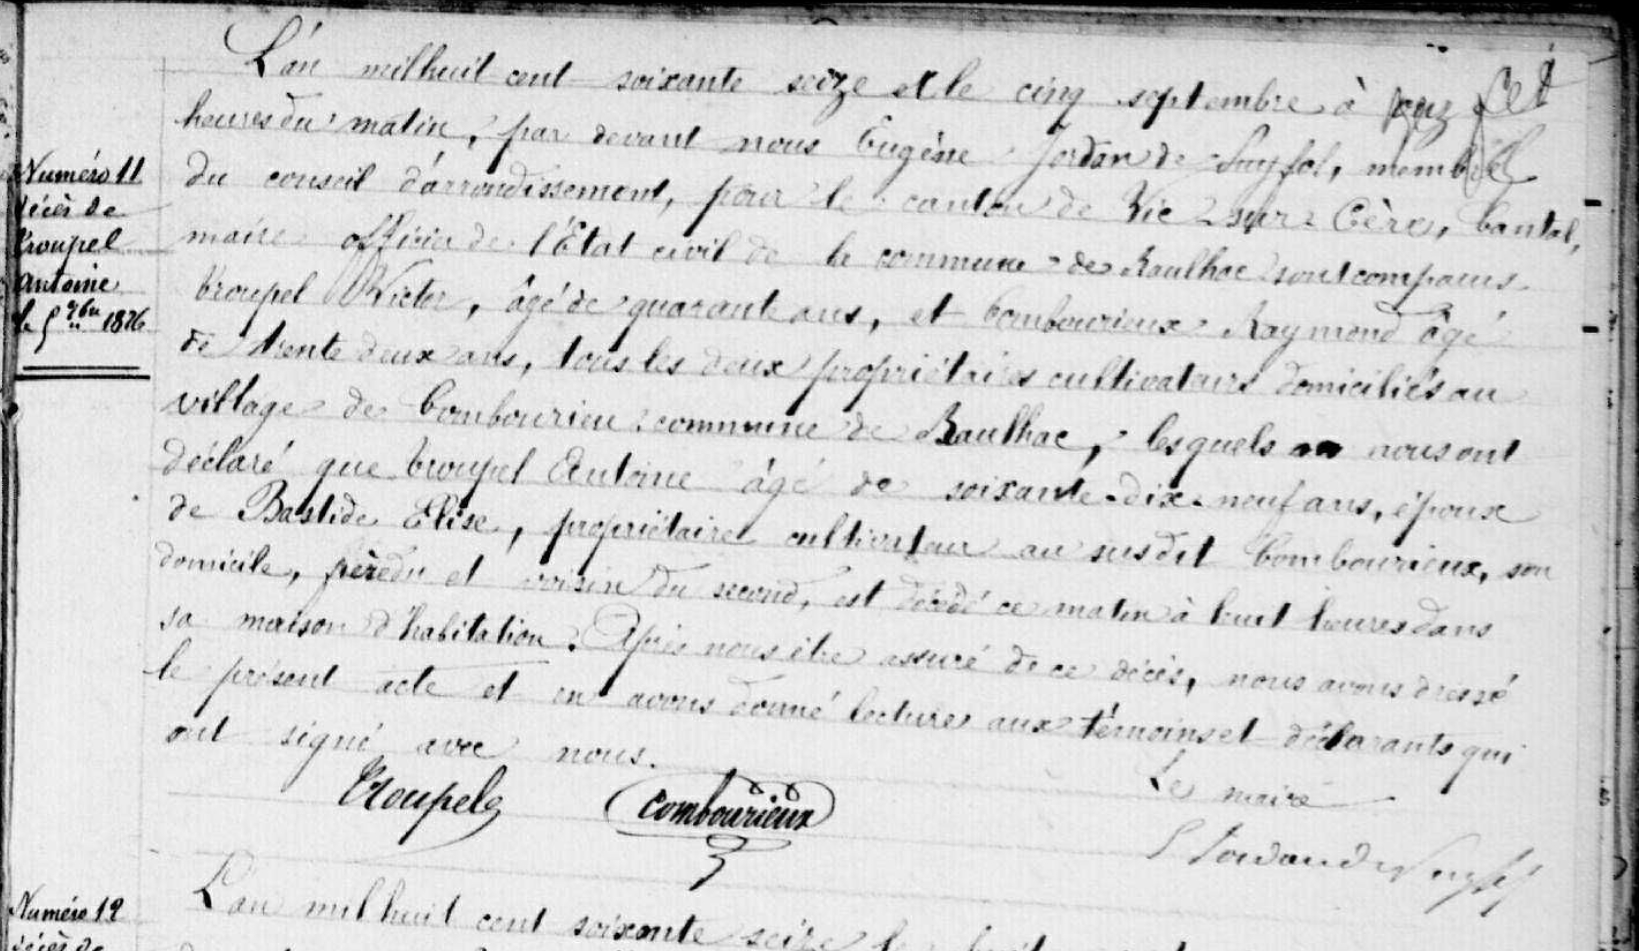 L'an milhuit cent soixante seize et le cinq septembre à
heures du matin, par devant nous Eugène Jordan de Puyfol, membre
Numéro 11
décès de
Croupel
Antoine
le 5 7bre 1876
du conseil d'arrondissement, pour le canton de Vic-sur-Cère, Cantal,
maire officier de l'Etat civil de la commune de Raulhac sont comparus
Croupel Victor, âgé de quarante ans, et Combourieux Raymond âgé
de trente deux ans, tous les deux propriétaires cultivateurs domiciliés au
village de Combourieu commune de Raulhac, lesquels nous ont
déclaré que Croupel Antoine âgé de soixante-dix-neuf ans, époux
de Bastide Elise, propriétaire cultivateur au susdit Combourieux, son
domicile, père du et voisin du second, est décédé ce matin à huit heures dans
sa maison d'habitation. Après nous être assuré de ce décès, nous avons dressé
le présent acte et en avons donné lecture aux témoins et déclarants qui
ont signé avec nous.
Croupel
Combourieux
Le maire
Numéro 12
décès de
L'an milhuit cent soixante seize le huit